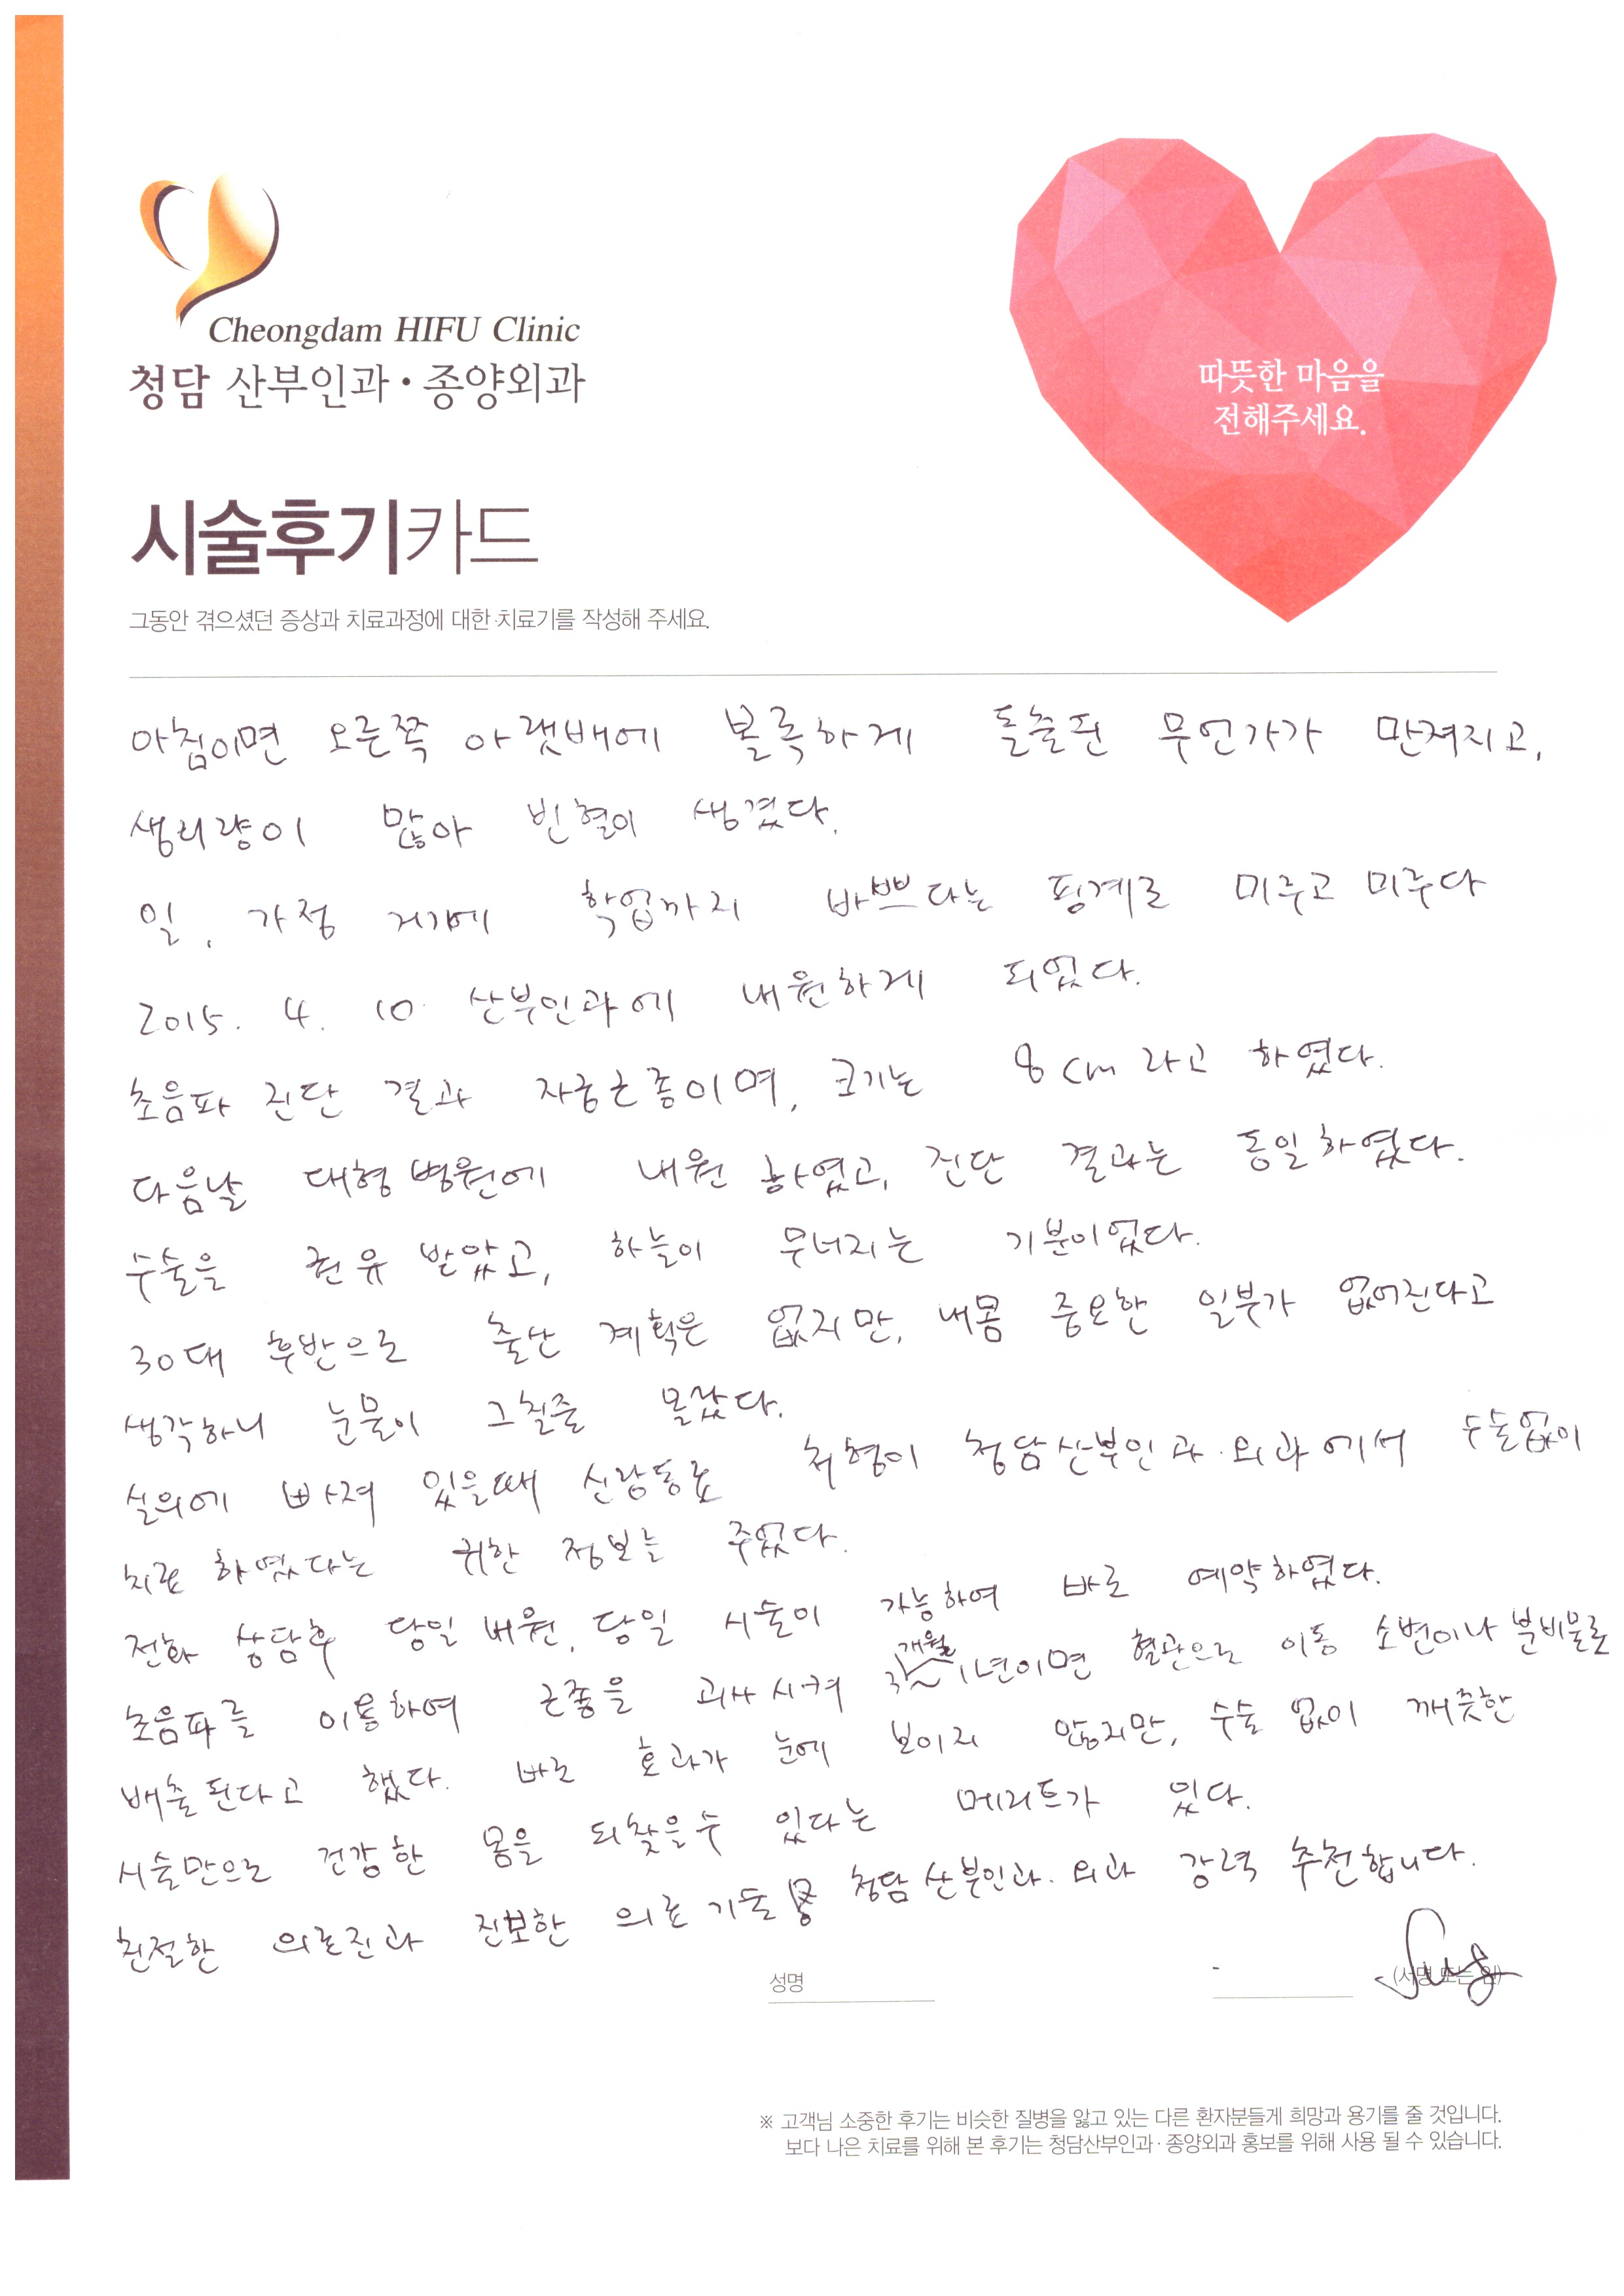 Cheongdam HIFU Clinic
청담 산부인과·종양외과
따뜻한 마음을
전해주세요.
시술후기카드
그동안 겪으셨던 증상과 치료과정에 대한 치료기를 작성해 주세요.
아침이면 오른쪽 아랫배에 볼록하게 돌출된 무언가가 만져지고,
생리량이 많아 빈혈이 생겼다.
일, 가정 거기에 학업까지 바쁘다는 핑계로 미루고 미루다
2015. 4. 10. 산부인과에 내원하게 되었다.
초음파 진단 결과 자궁근종이며, 크기는 8cm 라고 하였다.
다음날 대형병원에 내원 하였고, 진단 결과는 동일하였다.
수술을 권유 받았고, 하늘이 무너지는 기분이었다.
30대 후반으로 출산 계획은 없지만, 내몸 중요한 일부가 없어진다고
생각하니 눈물이 그칠줄 몰랐다.
실의에 빠져 있을때 신랑동료 처형이 청담산부인과·외과에서 수술없이
치료 하였다는 귀한 정보를 주었다.
전화 상담후 당일 내원, 당일 시술이 가능하여 바로 예약하였다.
초음파를 이용하여 근종을 괴사시켜 3개월~1년이면 혈관으로 이동 소변이나 분비물로
배출된다고 했다. 바로 효과가 눈에 보이지 않지만, 수술 없이 깨끗한
시술만으로 건강한 몸을 되찾을수 있다는 메리트가 있다.
친절한 의료진과 진보한 의료기술 청담산부인과·외과 강력 추천합니다.
성명
(서명 또는 인)
※ 고객님 소중한 후기는 비슷한 질병을 앓고 있는 다른 환자분들게 희망과 용기를 줄 것입니다.
보다 나은 치료를 위해 본 후기는 청담산부인과·종양외과 홍보를 위해 사용 될 수 있습니다.